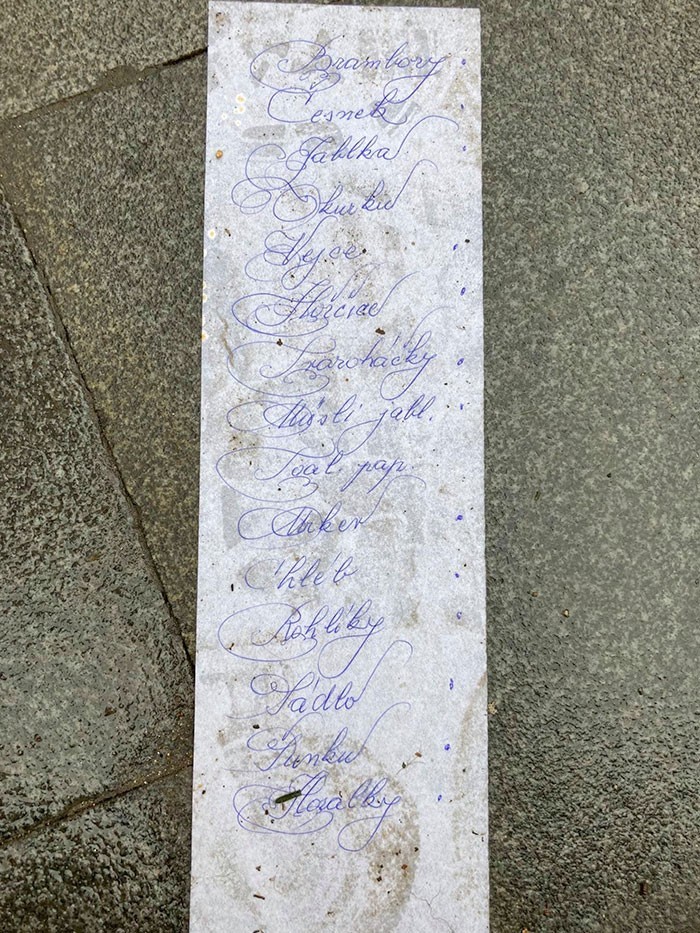 Brambory
Česnek
Jablka
Okurku
Vejce
Hořčici
Tvaroháčky
Müsli jabl.
Toal. pap.
Mrkev
Chléb
Rohlíky
Sádlo
Šunku
Horálky